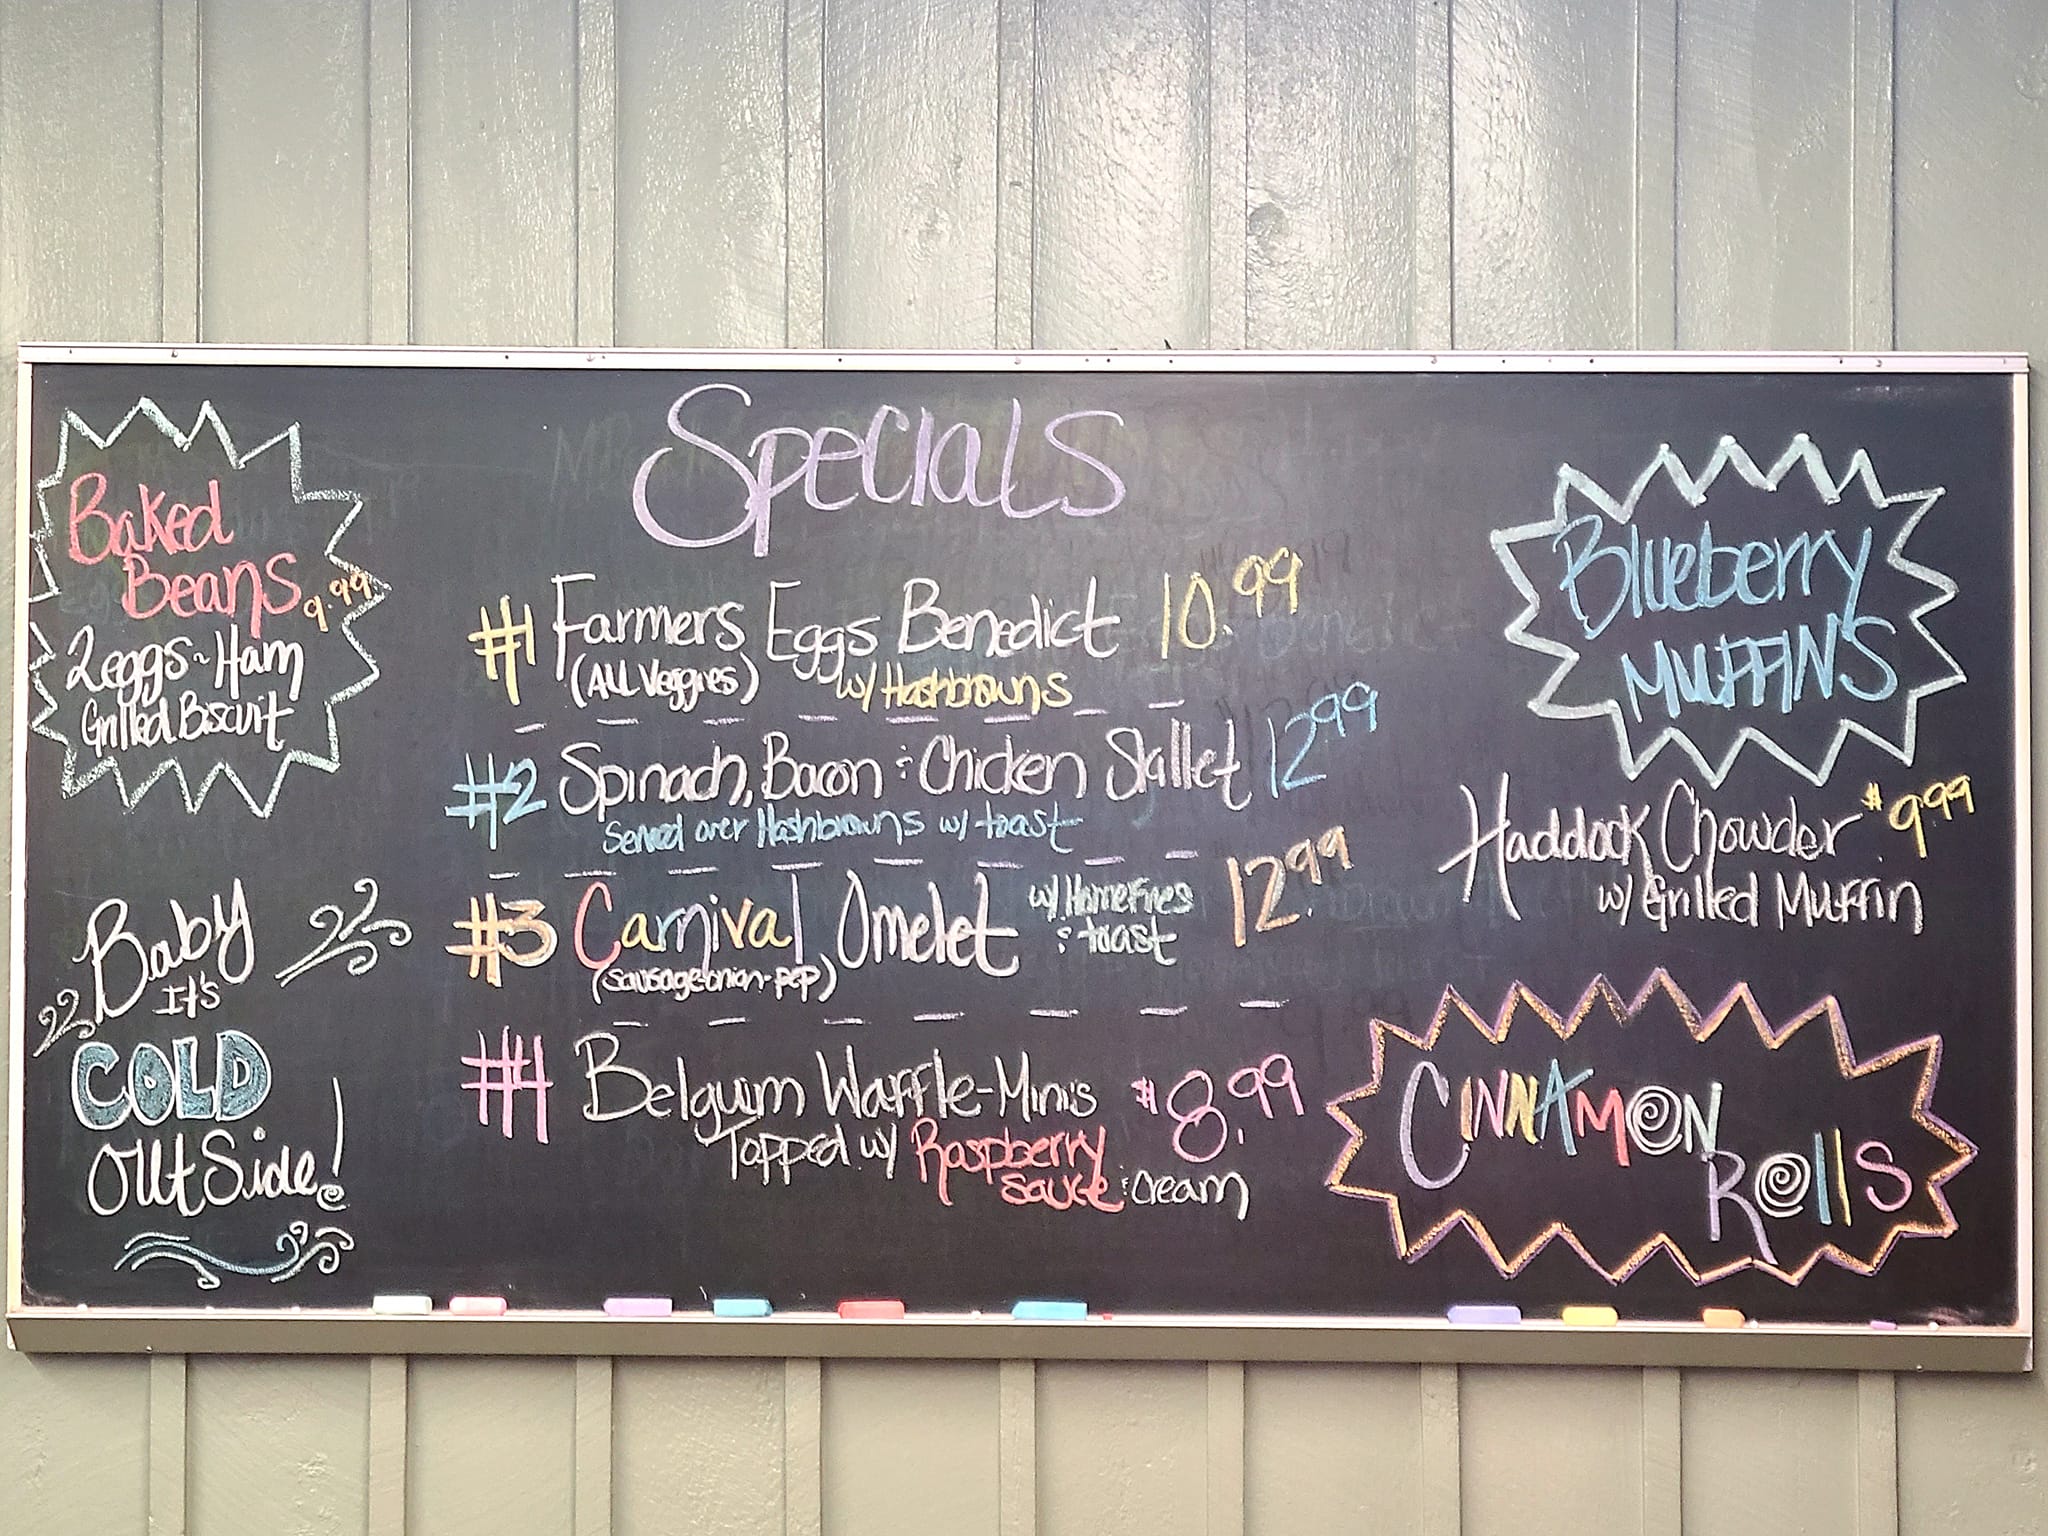 Specials
Baked
Beans 9.99
2 eggs ~ Ham
Grilled Biscuit
Baby
It's
COLD
OutSide!
#1 Farmers Eggs Benedict 10.99
(All Veggies) w/ Hashbrowns
#2 Spinach, Bacon & Chicken Skillet 12.99
Served over Hashbrowns w/ toast
#3 Carnival Omelet w/ Homefries & toast 12.99
(sausage-onion-pep)
#4 Belguim Waffle-Minis $8.99
Topped w/ Raspberry
Sauce & Cream
Blueberry
MUFFINS
Haddock Chowder $9.99
w/ Grilled Muffin
CINNAMON
Rolls